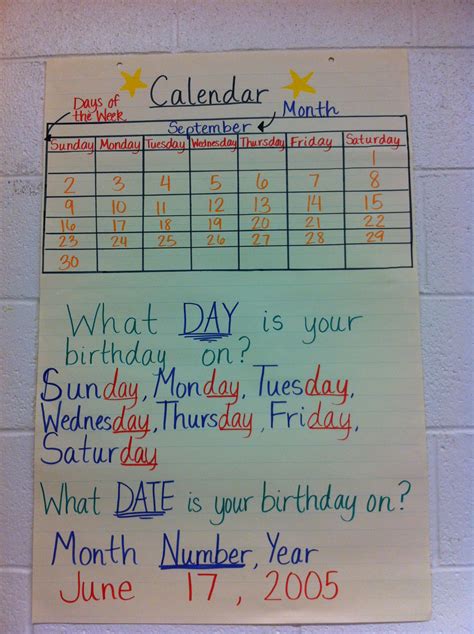 Calendar
Days of
the Week
Month
September
Sunday Monday Tuesday Wednesday Thursday Friday Saturday
1
2 3 4 5 6 7 8
9 10 11 12 13 14 15
16 17 18 19 20 21 22
23 24 25 26 27 28 29
30
What DAY is your
birthday on?
Sunday, Monday, Tuesday,
Wednesday, Thursday, Friday,
Saturday
What DATE is your birthday on?
Month Number, Year
June 17, 2005